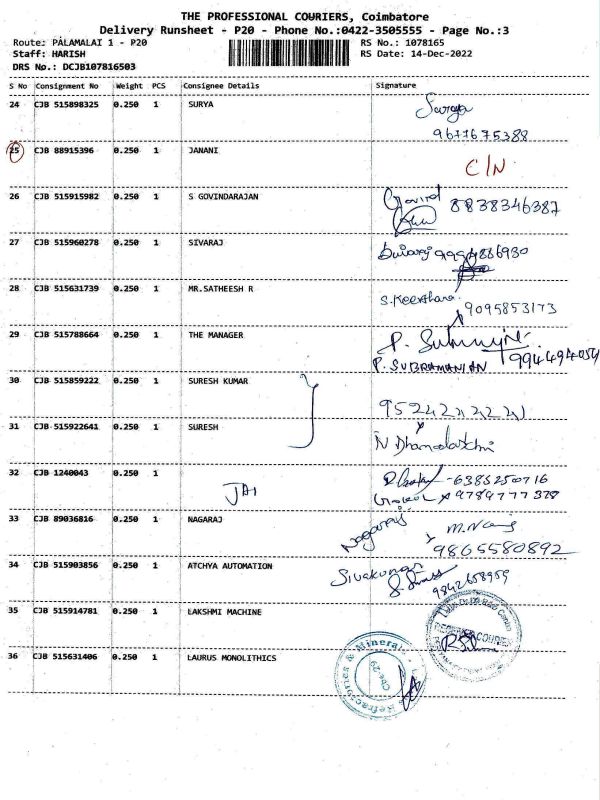 THE PROFESSIONAL COURIERS, Coimbatore
Delivery Runsheet - P20 - Phone No.:0422-3505555 - Page No.:3
Route: PALAMALAI 1 - P20 RS No.: 1078165
Staff: HARISH RS Date: 14-Dec-2022
DRS No.: DCJB107816503
S No Consignment No Weight PCS Consignee Details Signature
24 CJB 515898325 0.250 1 SURYA Surya
9677675388
25 CJB 88915396 0.250 1 JANANI C/N
26 CJB 515915982 0.250 1 S GOVINDARAJAN Govind 8838346387
27 CJB 515960278 0.250 1 SIVARAJ Sivaraj 9994886980
28 CJB 515631739 0.250 1 MR.SATHEESH R S.Keerthana
9095853173
29 CJB 515788664 0.250 1 THE MANAGER P.
P. SUBRAMANIAN
30 CJB 515859222 0.250 1 SURESH KUMAR
31 CJB 515922641 0.250 1 SURESH N Dhanalakshmi
32 CJB 1240043 0.250 1 JAI -6385250716
Gokul 9789777378
33 CJB 89036816 0.250 1 NAGARAJ Nagaraj
9865580892
34 CJB 515903856 0.250 1 ATCHYA AUTOMATION Sivakumar
9842658959
35 CJB 515914781 0.250 1 LAKSHMI MACHINE
36 CJB 515631406 0.250 1 LAURUS MONOLITHICS Refractories & Mineral
Cbe-29